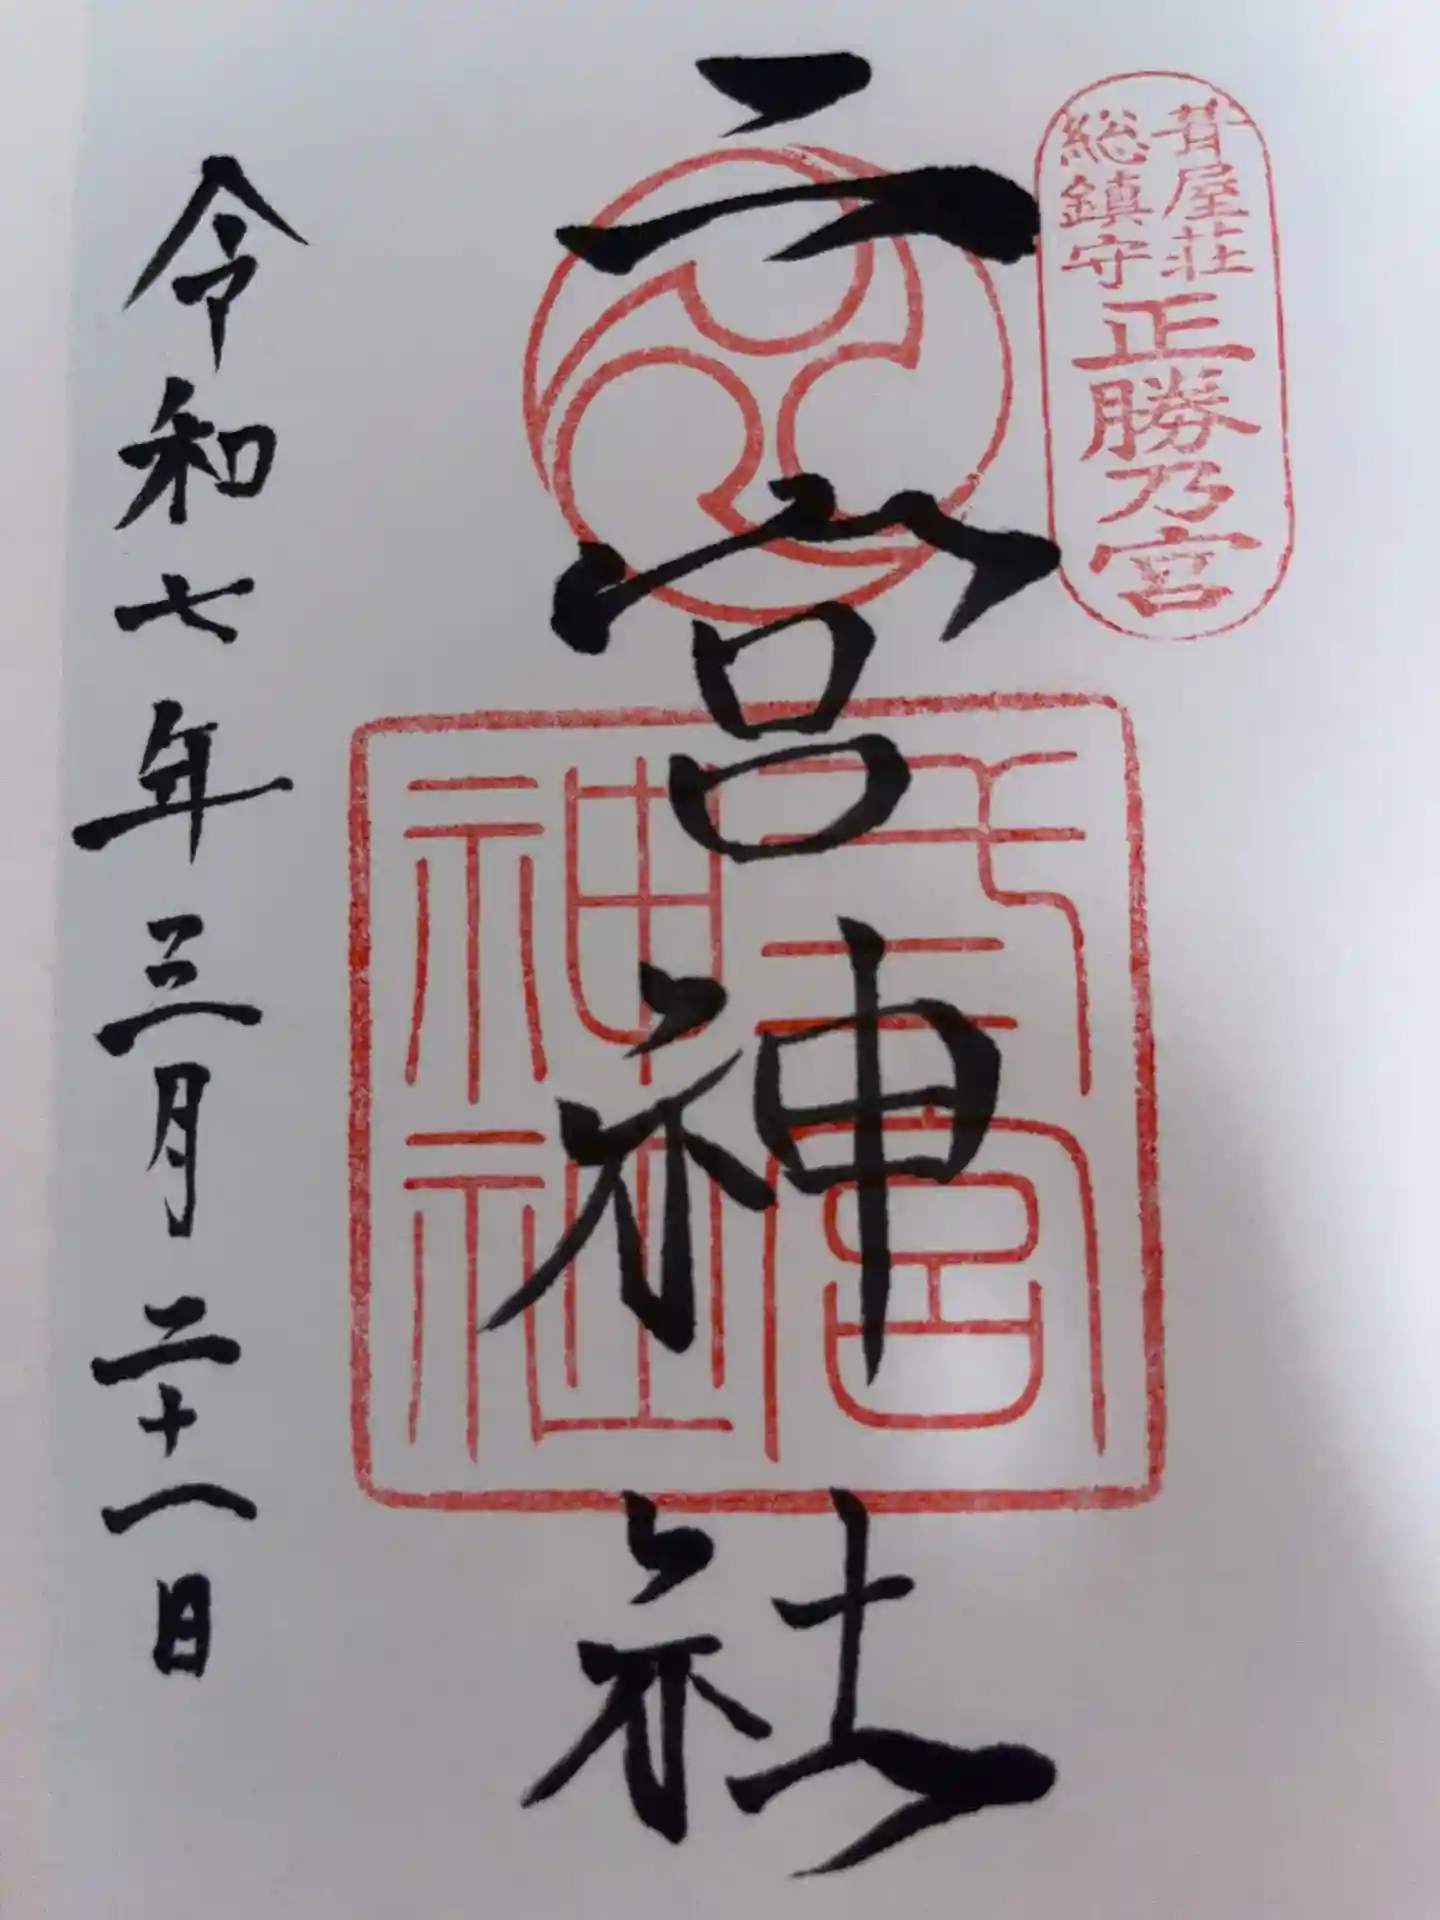 葺屋荘
総鎮守
正勝乃宮
二宮神社
弍宮
神社
令和七年三月二十一日